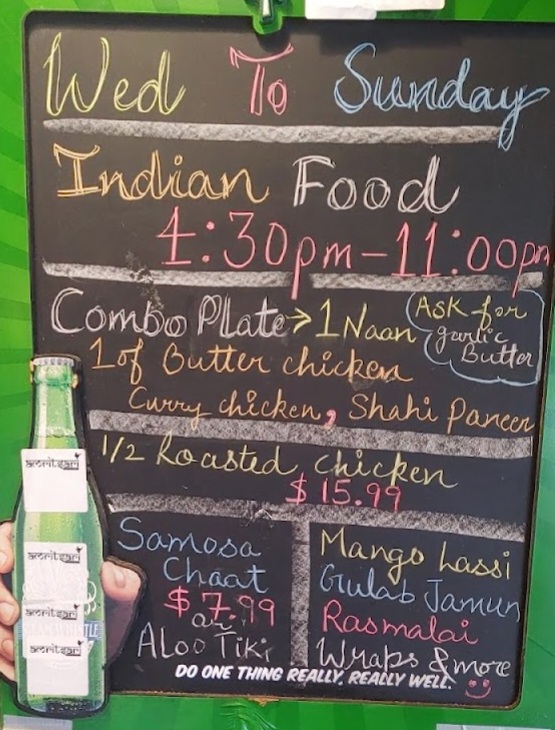 Wed To Sunday
Indian Food
4:30pm-11:00pm
Combo Plate > 1 Naan
Ask for
garlic
Butter
1 of Butter chicken
Curry chicken, Shahi Paneer
1/2 Roasted chicken
$15.99
Samosa
Chaat
$7.99
or
Aloo Tiki
Mango Lassi
Gulab Jamun
Rasmalai
Wraps & more
DO ONE THING REALLY, REALLY WELL.
amritsari
amritsari
amritsari
amritsari